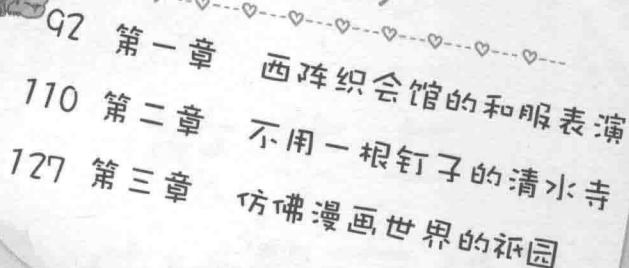 92 第一章 西阵织会馆的和服表演
110 第二章 不用一根钉子的清水寺
127 第三章 仿佛漫画世界的祇园